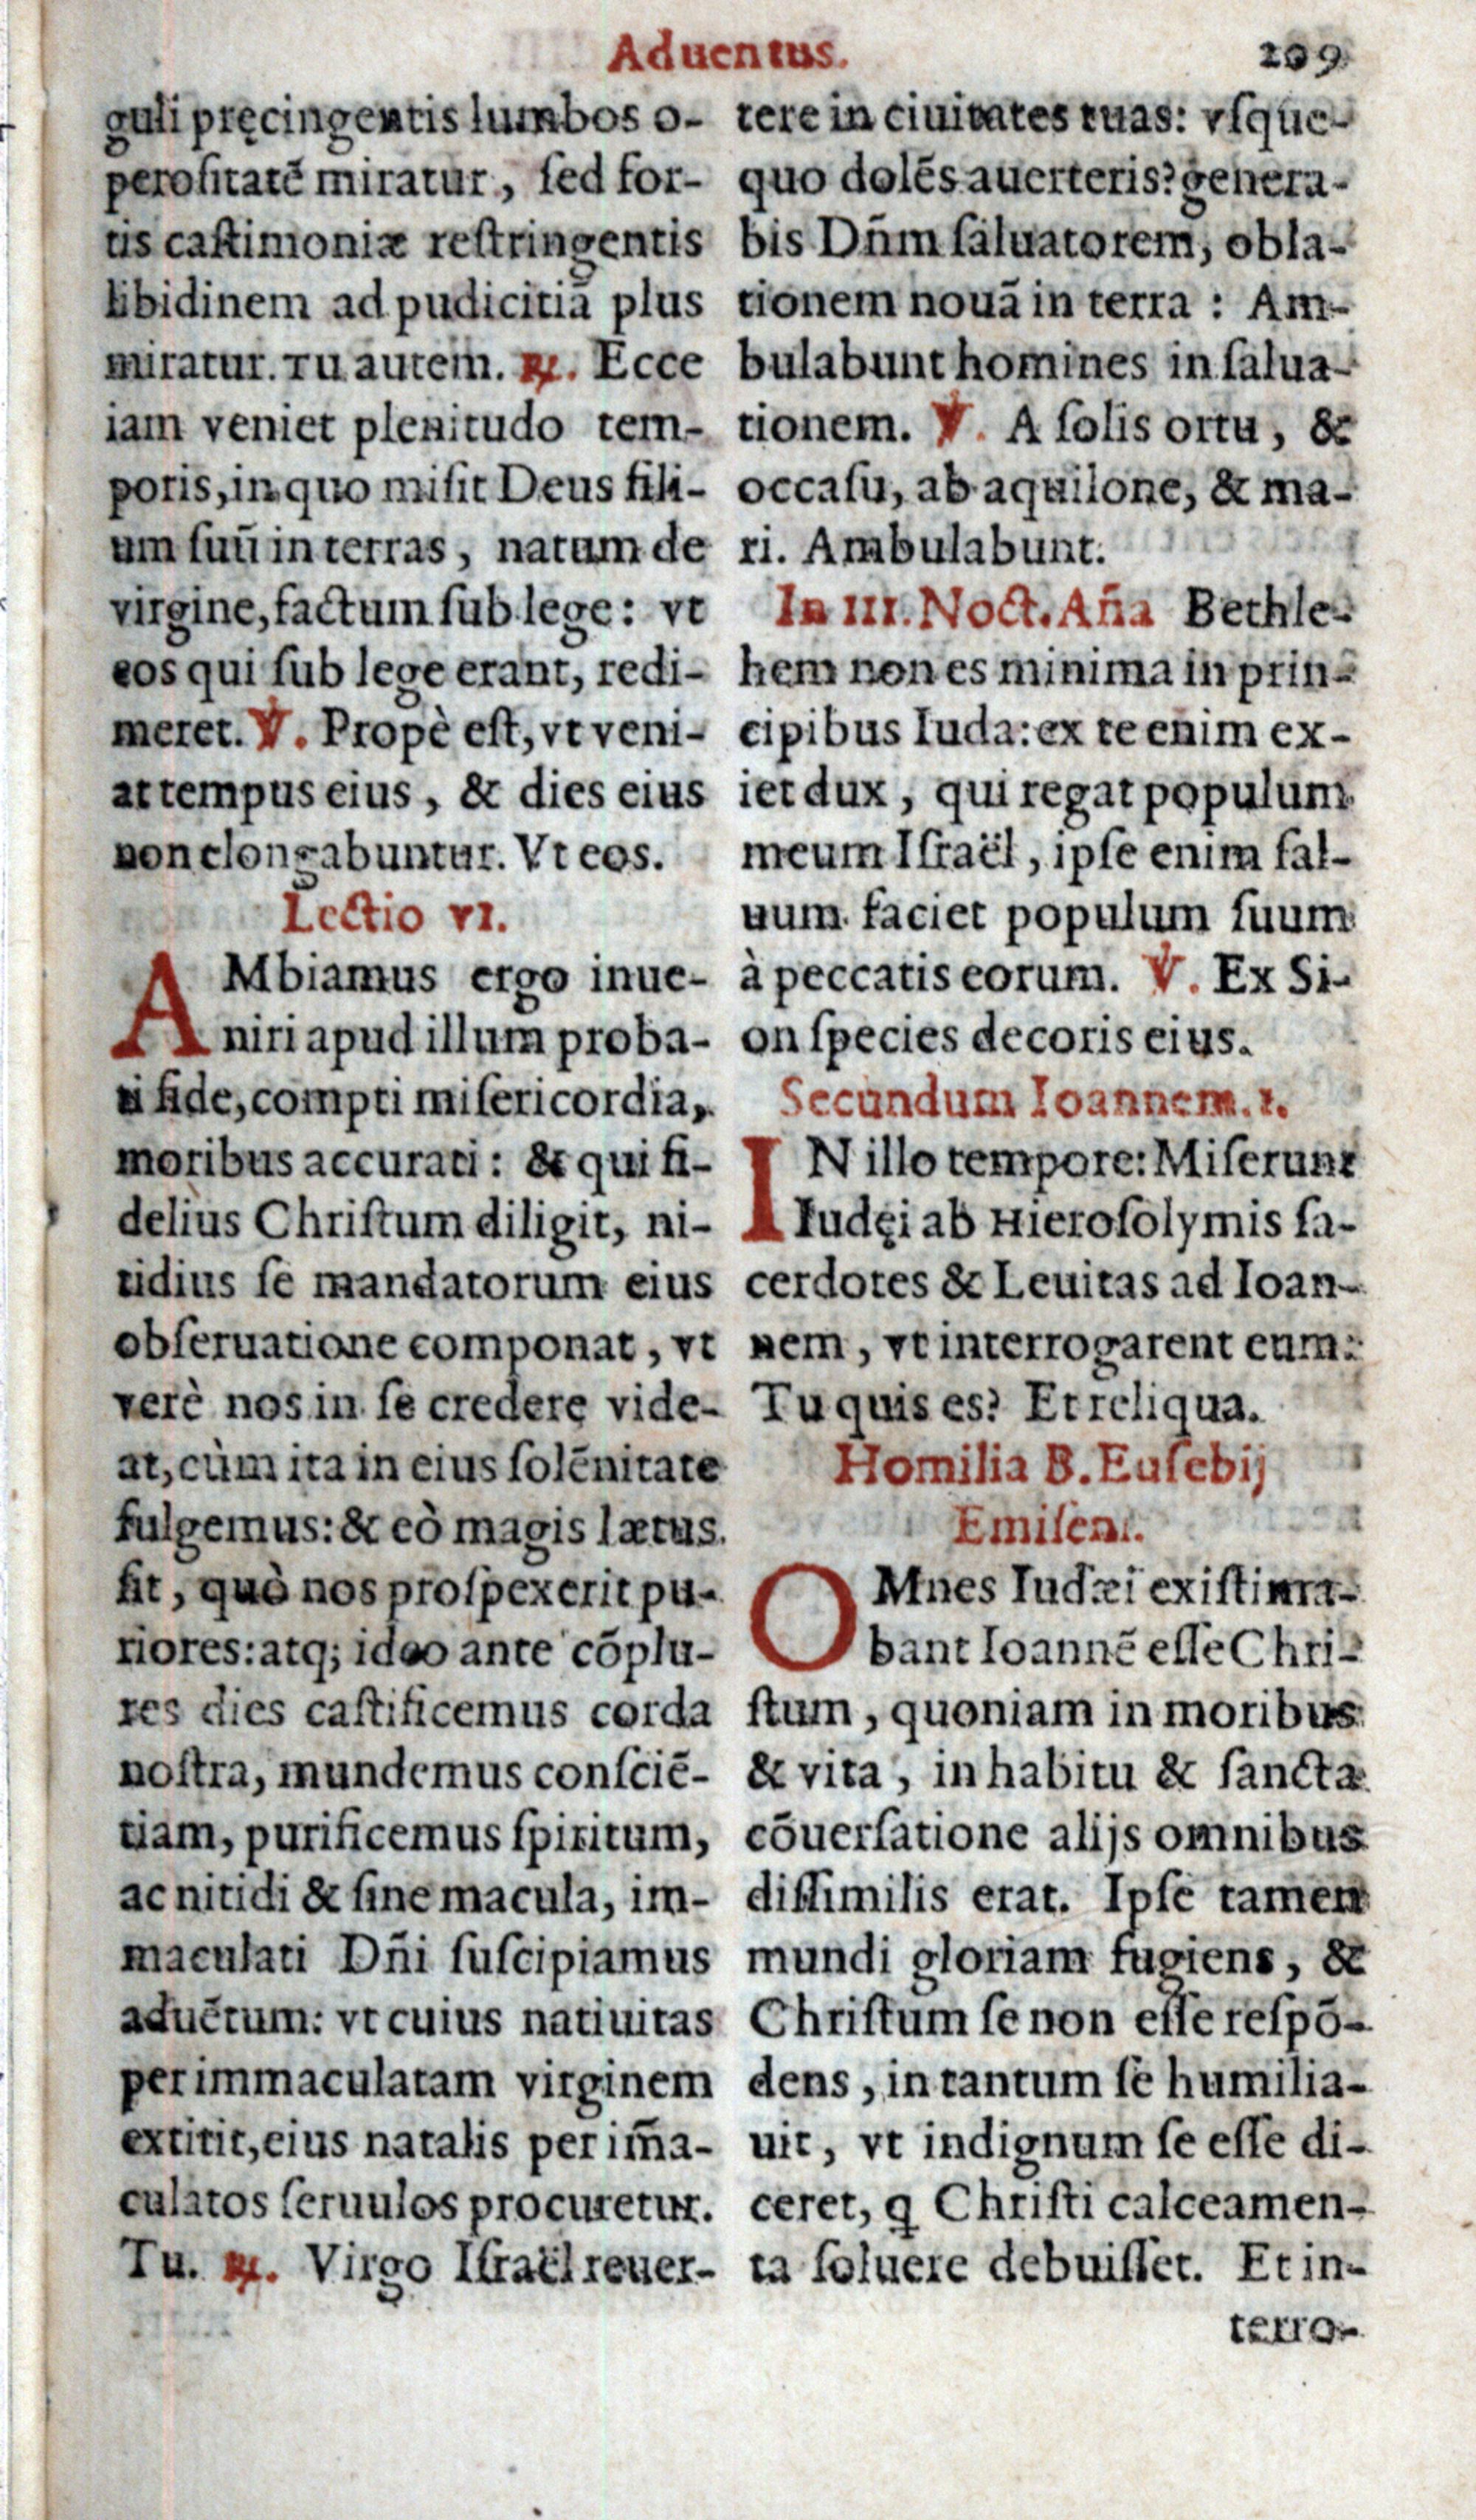 Aduentus.
209
guli pręcingentis lumbos o-
perositatē miratur, sed for-
tis castimoniæ restringentis
libidinem ad pudicitiā plus
miratur. Tu autem. ℟. Ecce
iam veniet plenitudo tem-
poris, in quo misit Deus fili-
um suū in terras, natum de
virgine, factum sub lege: vt
eos qui sub lege erant, redi-
meret. ℣. Propè est, vt veni-
at tempus eius, & dies eius
non elongabuntur. Vt eos.
Lectio VI.
AMbiamus ergo inue-
niri apud illum proba-
ti fide, compti misericordia,
moribus accurati: & qui fi-
deliùs Christum diligit, ni-
tidius se mandatorum eius
obseruatione componat, vt
verè nos in se credere vide-
at, cùm ita in eius solēnitate
fulgemus: & eò magis lætus
sit, quò nos prospexerit pu-
riores: atq; ideo ante cōplu-
res dies castificemus corda
nostra, mundemus consciē-
tiam, purificemus spiritum,
ac nitidi & sine macula, im-
maculati Dñi suscipiamus
aduētum: vt cuius natiuitas
per immaculatam virginem
extitit, eius natalis per im̃a-
culatos seruulos procuretur.
Tu. ℟. Virgo Israël reuer-
tere in ciuitates tuas: vsque-
quo dolēs auerteris? genera-
bis Dñm saluatorem, obla-
tionem nouā in terra: Am-
bulabunt homines in salua-
tionem. ℣. A solis ortu, &
occasu, ab aquilone, & ma-
ri. Ambulabunt.
In III. Noct. Aña Bethle-
hem non es minima in prin-
cipibus Iuda: ex te enim ex-
iet dux, qui regat populum
meum Israël, ipse enim sal-
uum faciet populum suum
à peccatis eorum. ℣. Ex Si-
on species decoris eius.
Secundum Ioannem. 1.
IN illo tempore: Miserunt
Iudęi ab Hierosolymis sa-
cerdotes & Leuitas ad Ioan-
nem, vt interrogarent eum:
Tu quis es? Et reliqua.
Homilia B. Eusebij
Emiseni.
OMnes Iudæi existima-
bant Ioannē esse Chri-
stum, quoniam in moribus
& vita, in habitu & sancta
cōuersatione alijs omnibus
dissimilis erat. Ipse tamen
mundi gloriam fugiens, &
Christum se non esse respō-
dens, in tantum se humilia-
uit, vt indignum se esse di-
ceret, q Christi calceamen-
ta soluere debuisset. Et in-
terro-